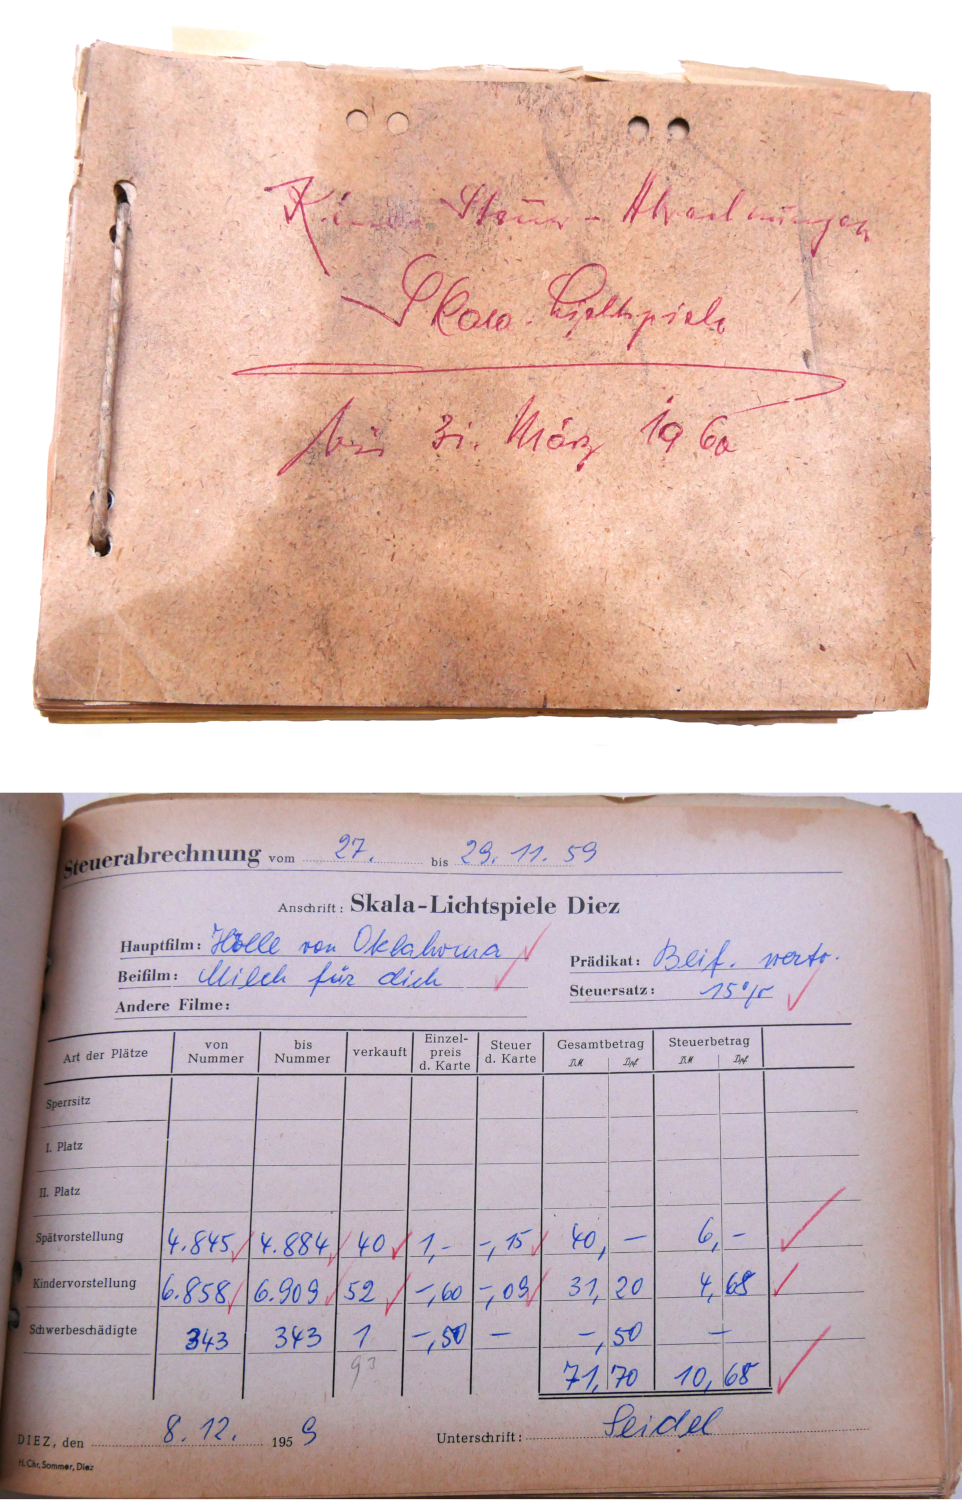 Kino-Steuer-Abrechnungen
Skala-Lichtspiele
bis 31. März 1960
Steuerabrechnung vom 27. bis 29. 11. 59
Anschrift: Skala-Lichtspiele Diez
Hauptfilm: Hölle von Oklahoma
Prädikat: Beif. wertv.
Beifilm: Milch für dich
Steuersatz: 15%
Andere Filme:
Art der Plätze von Nummer bis Nummer verkauft Einzel-preis d. Karte Steuer d. Karte Gesamtbetrag DM Dpf Steuerbetrag DM Dpf
Sperrsitz
I. Platz
II. Platz
Spätvorstellung 4.845 4.884 40 1,- -,15 40,- 6,-
Kindervorstellung 6.858 6.909 52 -,60 -,09 31,20 4,68
Schwerbeschädigte 343 343 1 -,50 - -,50 -
93 71,70 10,68
DIEZ, den 8. 12. 1959 Unterschrift: Seidel
H. Chr. Sommer, Diez